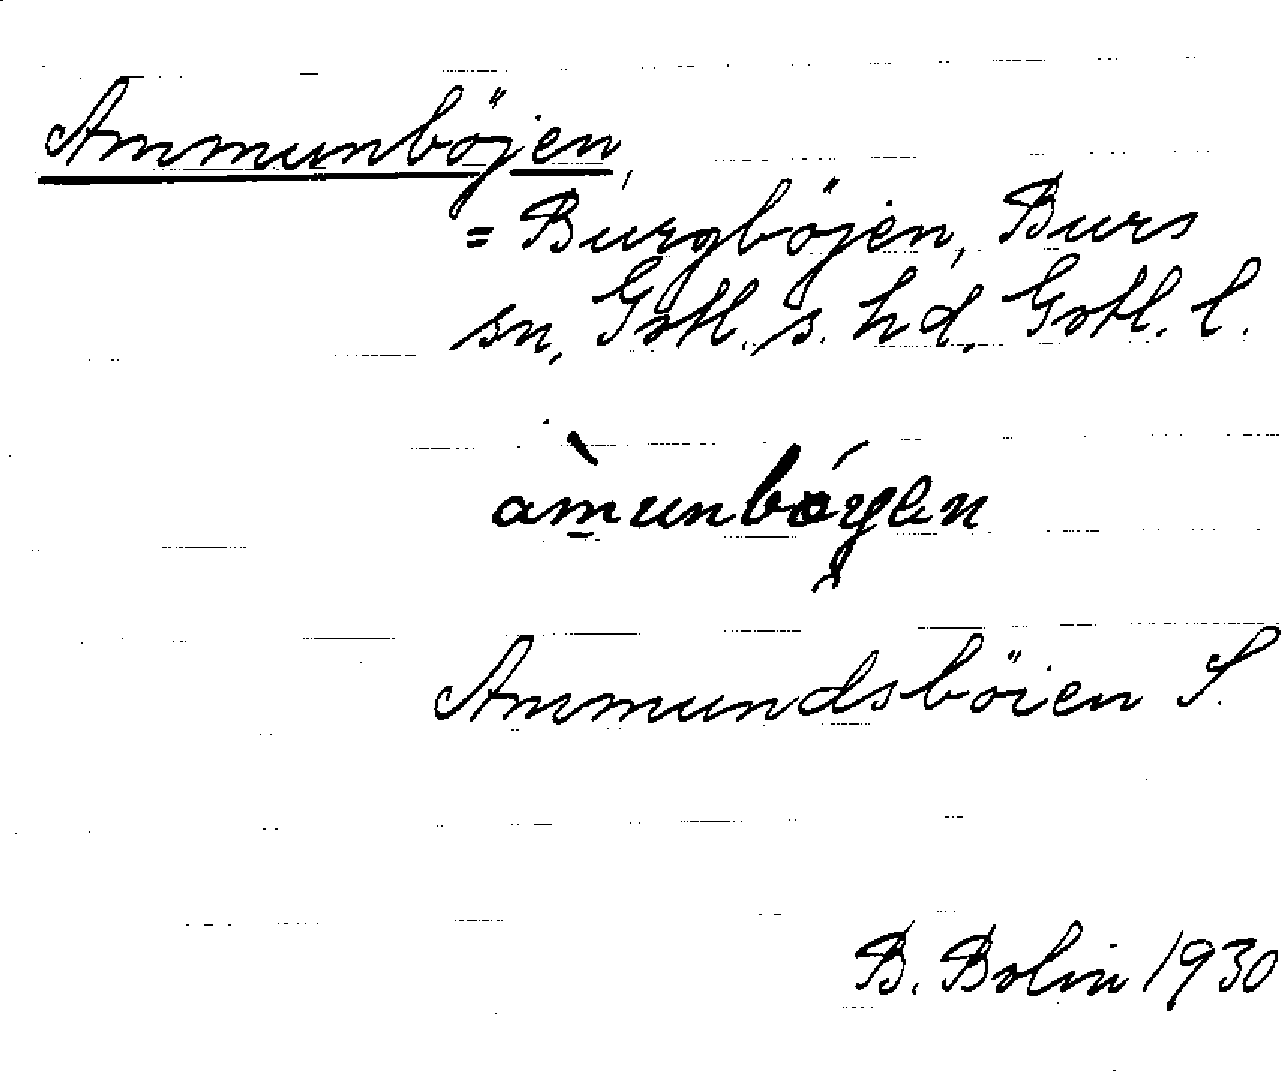 Ammunböjen,
= Burgböjen, Burs
sn, Gotl. s. hd, Gotl. l.
Ammundsböien S.
B. Bolin 1930